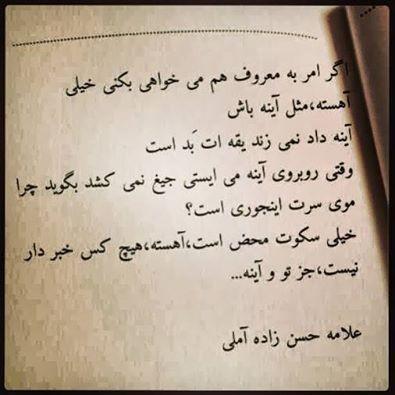 اگر امر به معروف هم می خواهی بکنی خیلی
آهسته،مثل آینه باش
آینه داد نمی زند یقه ات بَد است
وقتی روبروی آینه می ایستی جیغ نمی کشد بگوید چرا
موی سرت اینجوری است؟
خیلی سکوت محض است،آهسته،هیچ کس خبر دار
نیست،جز تو و آینه...
علامه حسن زاده آملی